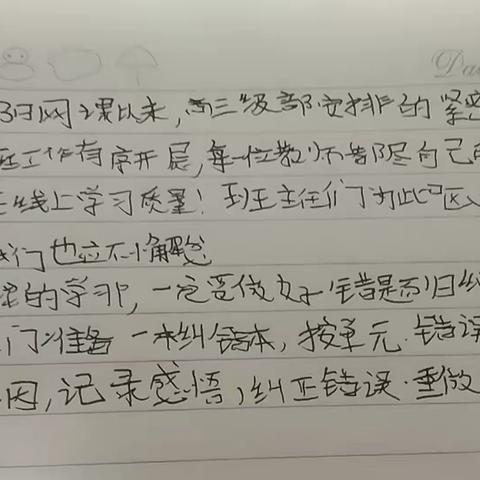 Da
归网课以来,高三级部安排的紧密
工作有序开展,每一位教师皆尽自己的
线上学习质量!班主任们对此呕心
们也应不懈怠
的学习中,一定要做好错题归纠
门准备一本纠错本,按单元.错误
因,记录感悟,纠正错误.重做